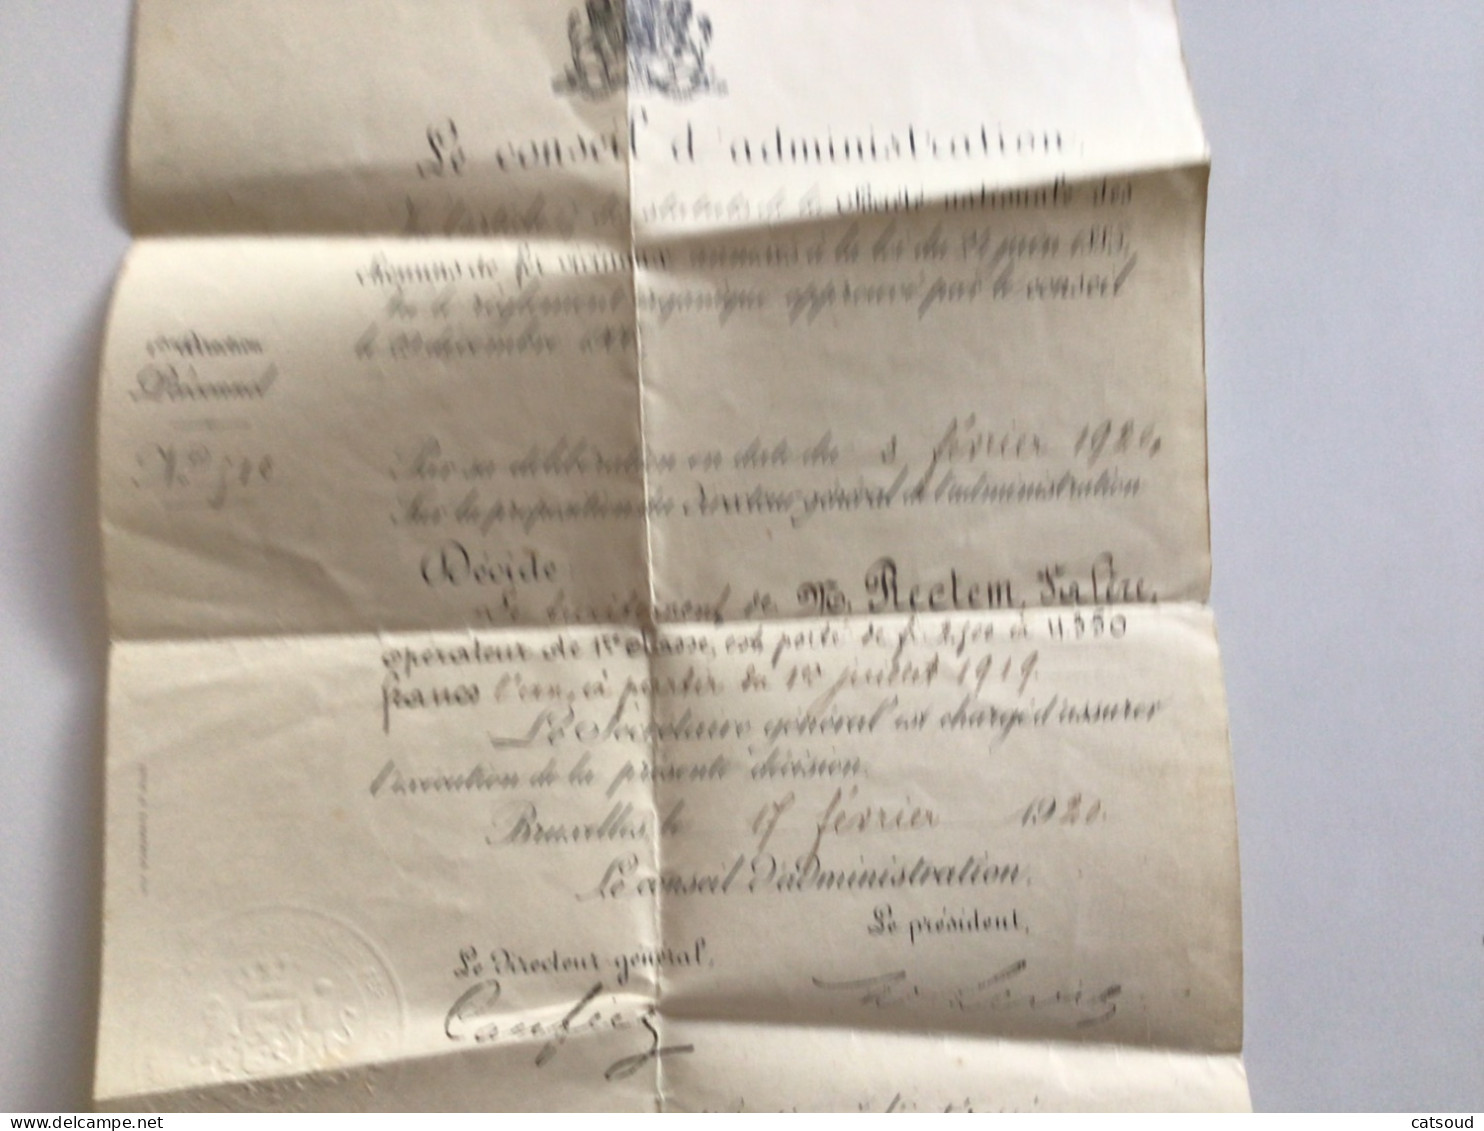 Le conseil d'administration,
Vu l'article des statuts de la Société nationale des
chemins de fer vicinaux annexés à la loi du 24 juin 1885,
Vu le règlement organique approuvé par le conseil
le décembre
Personnel
N°
Par sa délibération en date du 3 février 1920,
Sur la proposition du Directeur général de l'administration
Décide:
Le traitement de M. Rectem, Valère,
opérateur de 1re classe, est porté de fr. à 4.550
francs l'an, à partir du 1er juillet 1919.
Le Secrétaire général est chargé d'assurer
l'exécution de la présente décision.
Bruxelles, le 17 février 1920.
Le conseil d'administration.
Le président,
Le Directeur-général,
catsoud